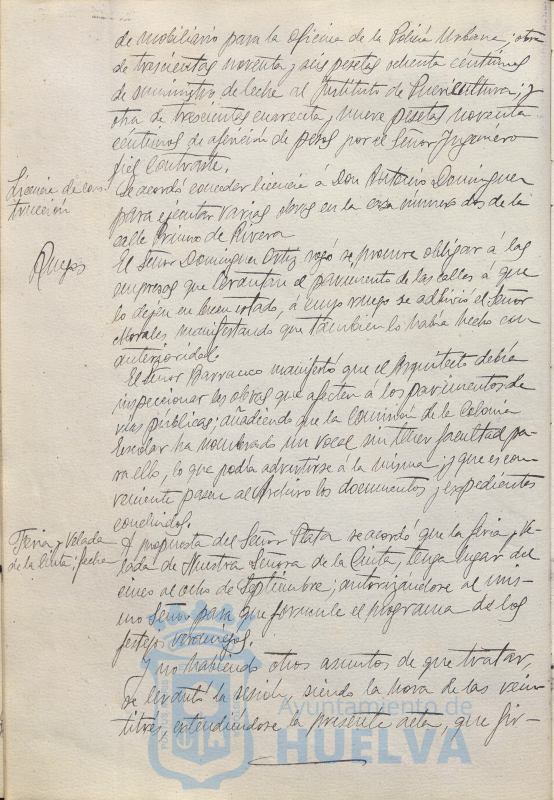 de mobiliario para la oficina de la Policía Urbana; otra
de trescientas noventa y seis pesetas ochenta céntimos
de suministro de leche al Instituto de Puericultura; y
otra de trescientas cuarenta y nueve pesetas noventa
céntimos de afinación de pesas por el Señor Ingeniero
fiel contraste.
Licencia de cons-
trucción
Se acordó conceder licencia á Don Antonio Domínguez
para ejecutar varias obras en la casa número dos de la
calle Primo de Rivera
Ruegos
El Señor Domínguez Ortiz rogó se procure obligar á las
empresas que levantan el pavimento de las calles á que
lo dejen en buen estado, á cuyo ruego se adhirió el Señor
Morales manifestando que también lo había hecho con
anterioridad.
El Señor Barranco manifestó que el Arquitecto debía
inspeccionar las obras que afecten á los pavimentos de
vías públicas; añadiendo que la Comisión de la Colonia
Escolar ha nombrado un vocal sin tener facultad pa-
ra ello, lo que podía advertirse á la misma; y que es con-
veniente pasen al Archivo los documentos y expedientes
concluidos.
Feria y Velada
de la Cinta: fecha
A propuesta del Señor Plata se acordó que la feria y Ve-
lada de Nuestra Señora de la Cinta, tenga lugar del
cinco al ocho de Septiembre; autorizándose al mis-
mo Señor para que formule el programa de los
festejos veraniegos.
Y no habiendo otros asuntos de que tratar,
se levantó la sesión, siendo la hora de las vein-
titres, extendiéndose la presente acta, que fir-
Ayuntamiento de
HUELVA